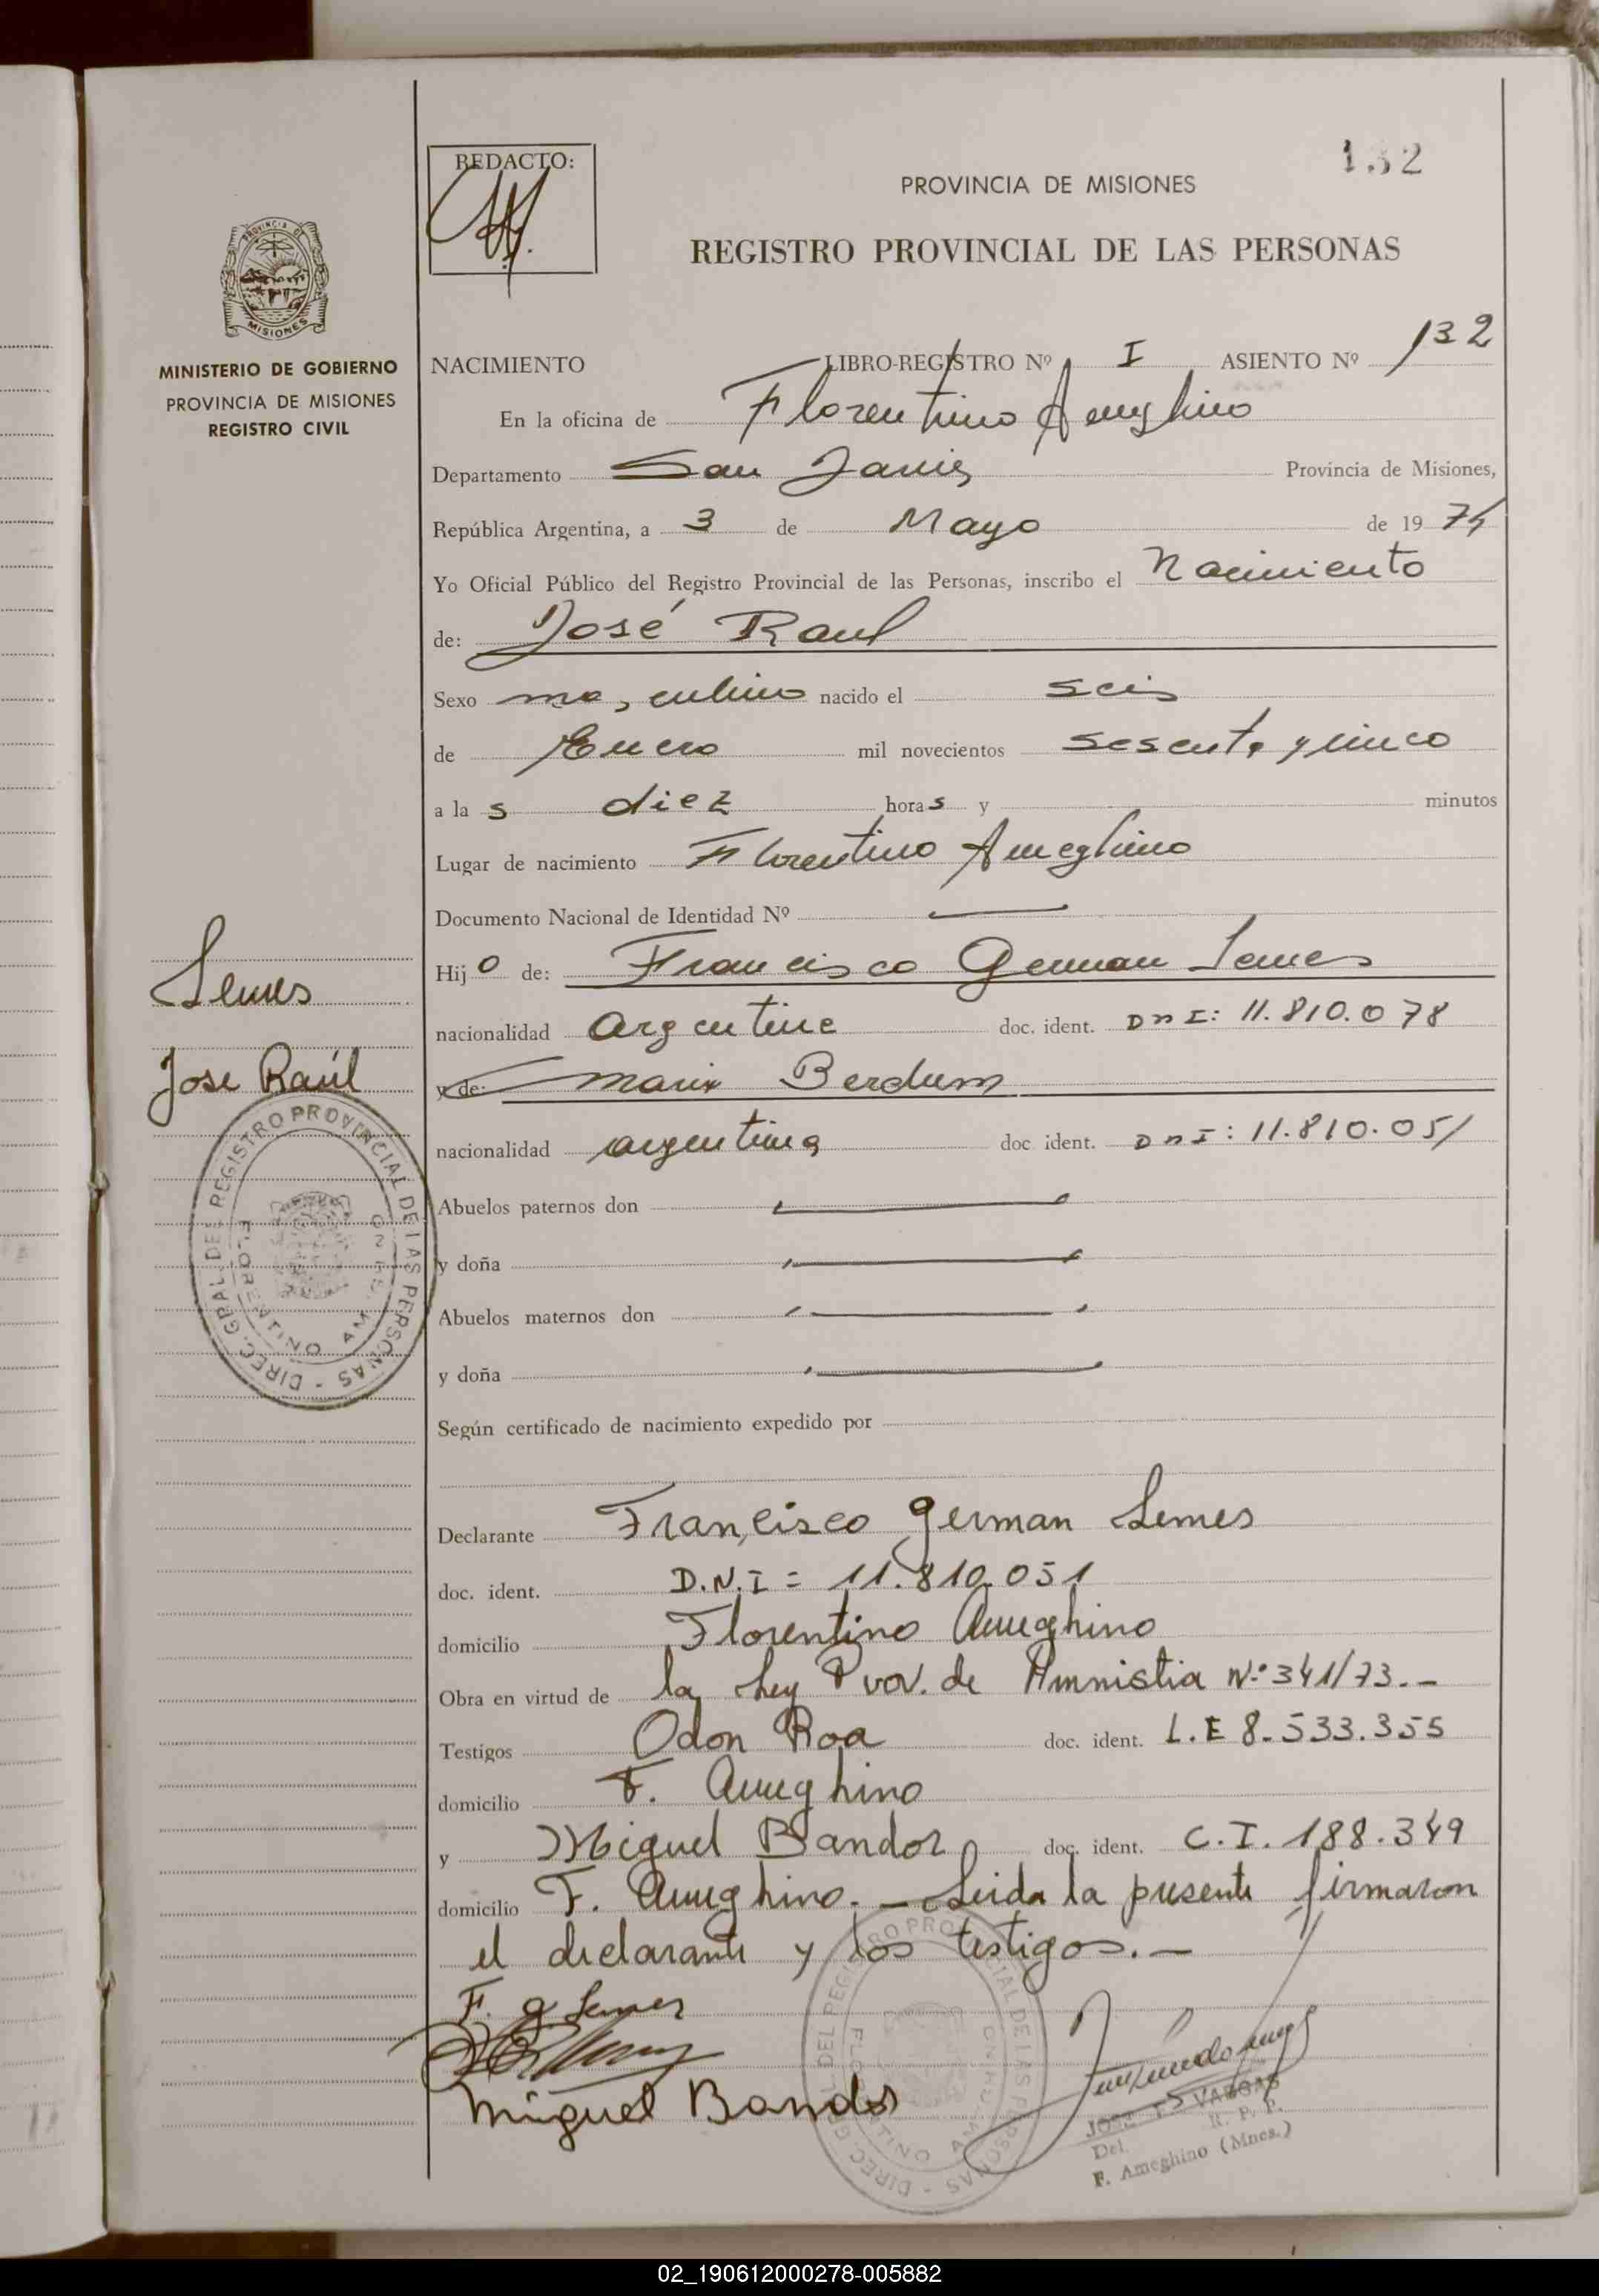 132
REDACTO:
PROVINCIA DE MISIONES
REGISTRO PROVINCIAL DE LAS PERSONAS
MISIONES
MINISTERIO DE GOBIERNO
PROVINCIA DE MISIONES
REGISTRO CIVIL
NACIMIENTO LIBRO-REGISTRO Nº I ASIENTO Nº 132
En la oficina de Florentino Ameghino
Departamento San Javier Provincia de Misiones,
República Argentina, a 3 de Mayo de 1974
Yo Oficial Público del Registro Provincial de las Personas, inscribo el Nacimiento
de: José Raul
Sexo masculino nacido el seis
de Enero mil novecientos sesenta y cinco
a las diez horas y minutos
Lugar de nacimiento Florentino Ameghino
Documento Nacional de Identidad Nº
Hijo de: Francisco German Lemes
nacionalidad argentina doc. ident. DnI: 11.810.078
y de: Maria Berdum
nacionalidad argentina doc ident. DnI: 11.810.051
Abuelos paternos don
y doña
Abuelos maternos don
y doña
Según certificado de nacimiento expedido por
Declarante Francisco German Lemes
doc. ident. D.N.I = 11.810.051
domicilio Florentino Ameghino
Obra en virtud de la Ley Prov. de Amnistia N.º 341/73.-
Testigos Odon Roa doc. ident. L.E 8.533.355
domicilio F. Ameghino
y Miguel Bandor doc. ident. C.I. 188.349
domicilio F. Ameghino. - Leida la presente firmaron
el declarante y los testigos.-
F. g Lemes
Miguel Bandos
VARGAS
R. P. P.
Del.
F. Ameghino (Mnes.)
Lemes
Jose Raúl
DIREC. GRAL. DEL REGISTRO PROVINCIAL DE LAS PERSONAS
FLORENTINO AMEGHINO
DIREC. GRAL DEL REGISTRO PROVINCIAL DE LAS PERSONAS
FLORENTINO AMEGHINO
02_190612000278-005882